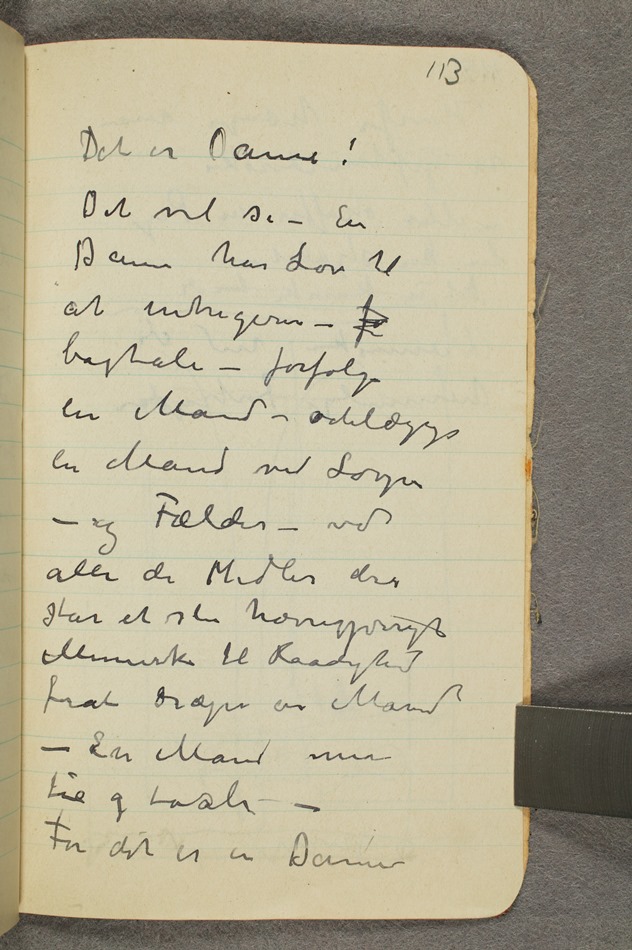 113
Det er Dame!
Det vil si – En
Dame har Lov til
at intrigere –
bagtale – forfølge
en Mand – ødelægge
en Mand ved Løgne
– og Fælder – ved
alle de Midler der
star et slu hævngjerrigt
Menneske til Raadighed
for at dræpe en Mand
– En Mand maa
tie og taale –
For det er en Dame